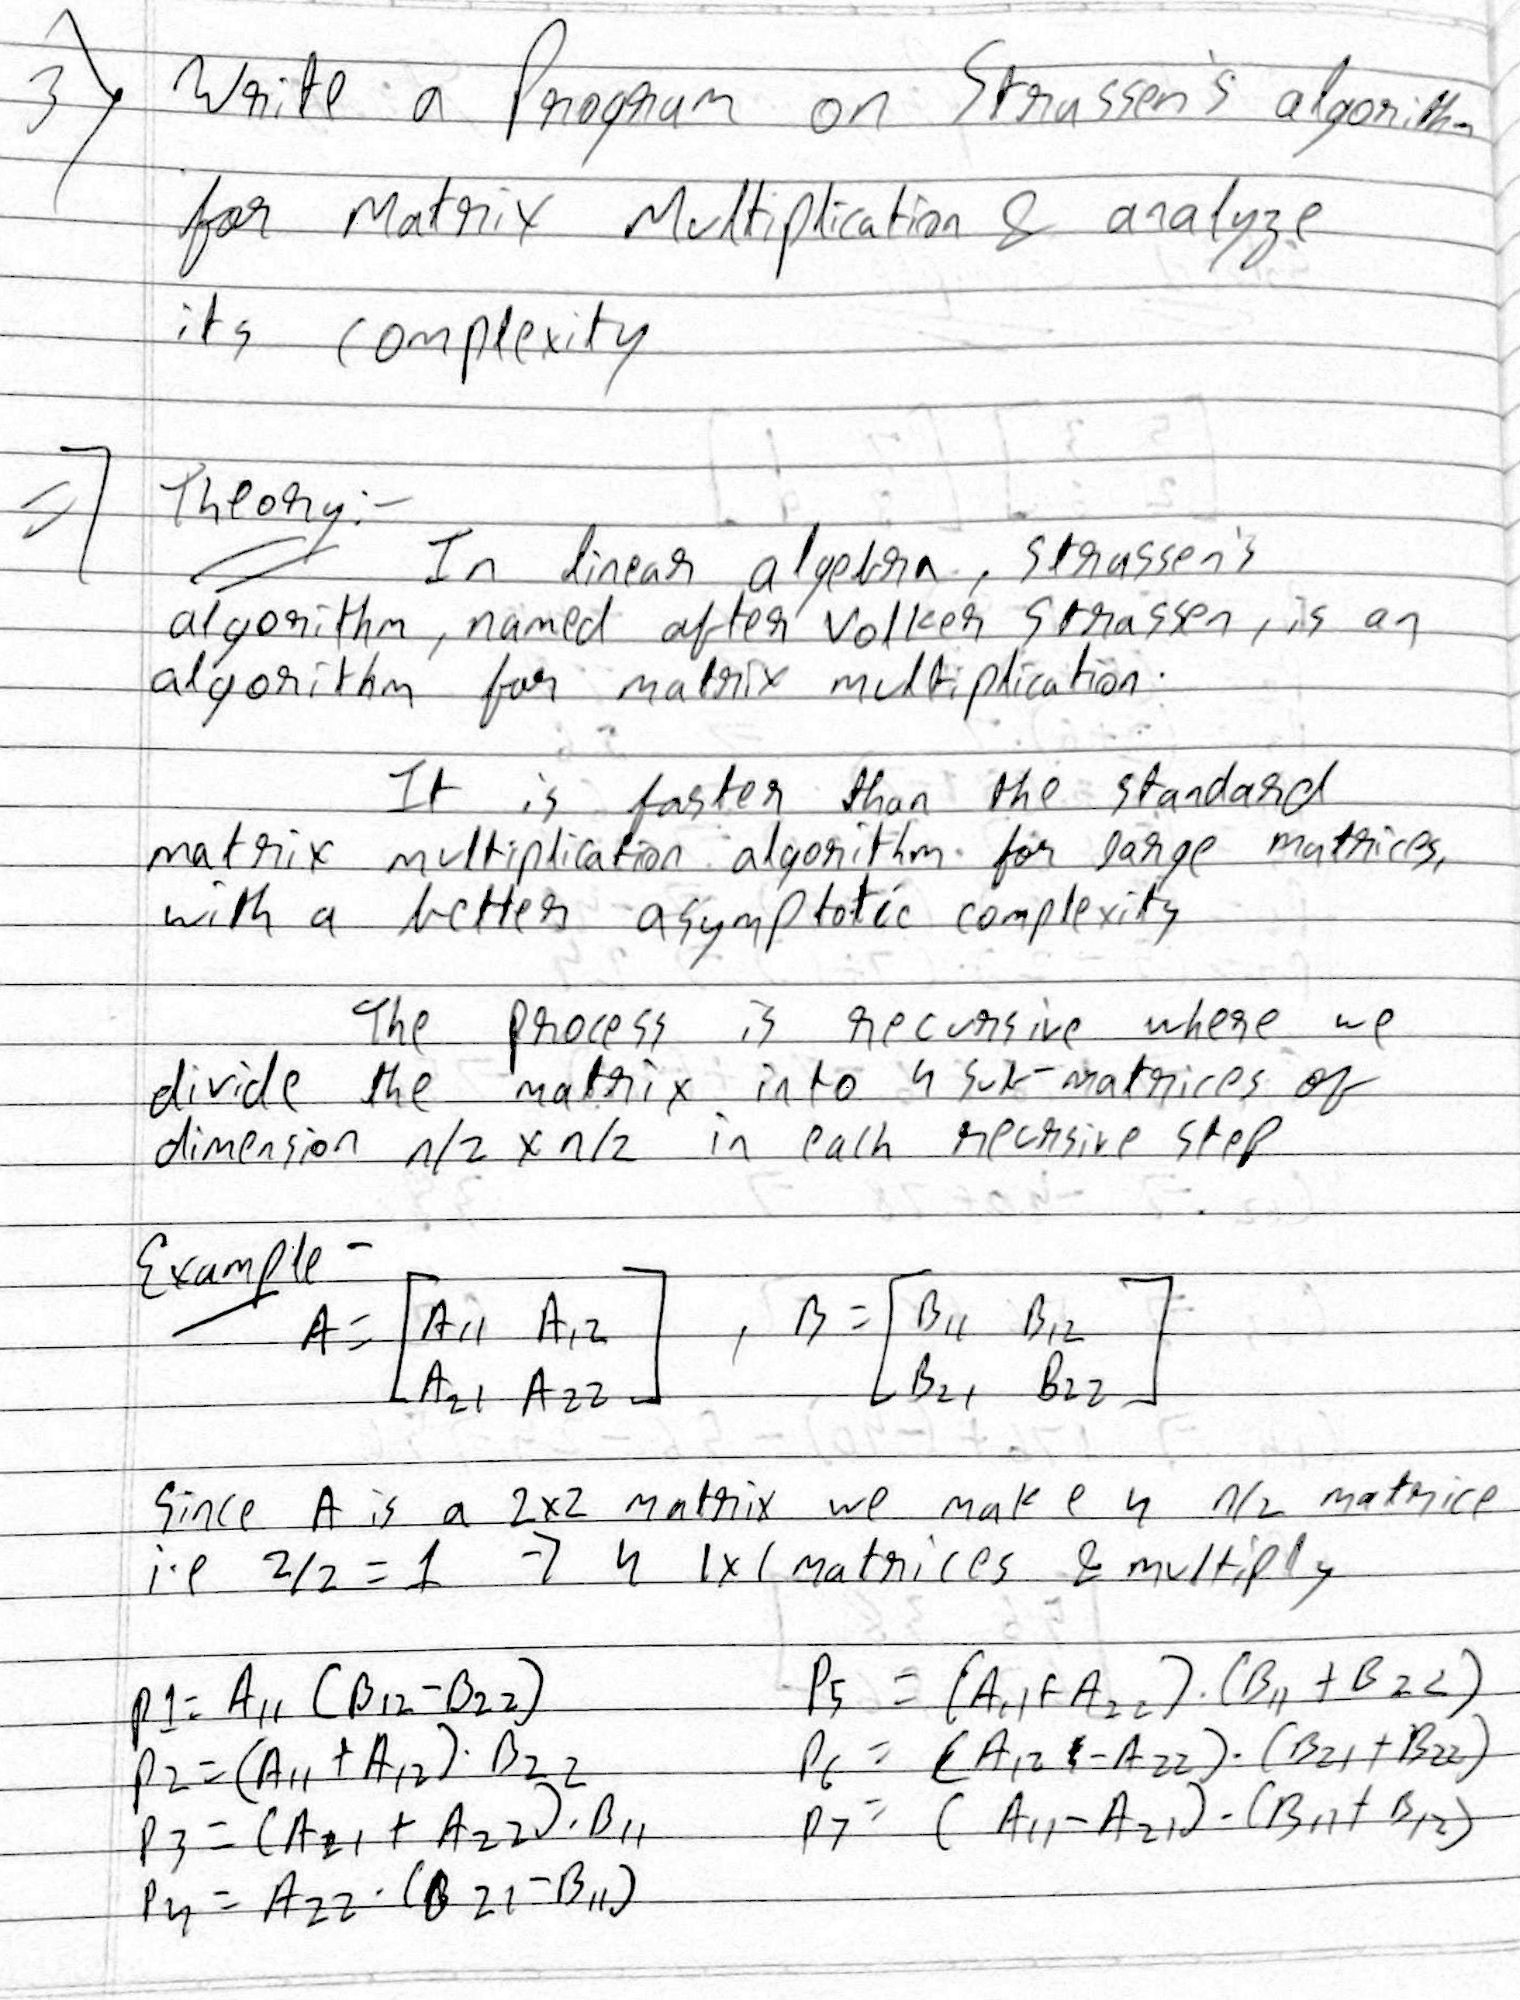 3) Write a Program on Strassen's algorithm
for Matrix Multiplication & analyze
its complexity
=> Theory:-
In linear algebra, Strassen's
algorithm, named after Volker Strassen, is an
algorithm for matrix multiplication.
It is faster than the standard
matrix multiplication algorithm for large matrices,
with a better asymptotic complexity
The process is recursive where we
divide the matrix into 4 sub-matrices of
dimension n/2 x n/2 in each recursive step
Example -
A = [A11 A12 , B = [B11 B12
A21 A22] B21 B22]
Since A is a 2x2 matrix we make 4 n/2 matrice
i.e 2/2 = 1 -> 4 1x1 matrices & multiply
P1 = A11 (B12-B22) P5 = (A11+A22).(B11+B22)
P2 = (A11+A12).B22 P6 = (A12-A22).(B21+B22)
P3 = (A21+A22).B11 P7 = (A11-A21).(B11+B12)
P4 = A22.(B21-B11)